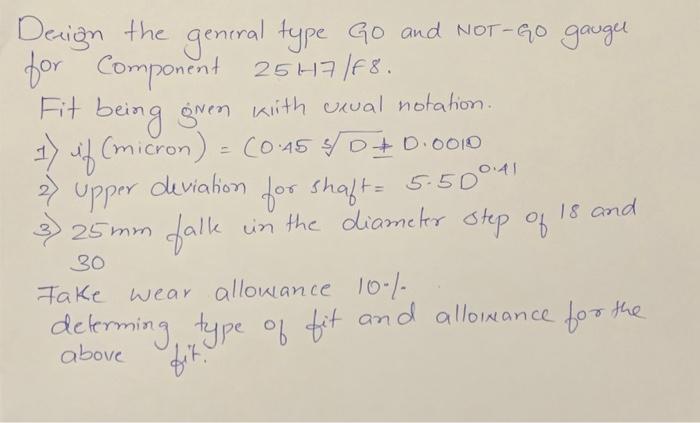 Design the general type GO and NOT-GO gauge
for Component 25H7/f8.
Fit being given with usual notation.
1) if (micron) = (0.45 ∛D ± 0.001D
2) Upper deviation for shaft = 5.5D^0.41
3) 25mm falk in the diameter step of 18 and
30
Take wear allowance 10%
determing type of fit and allowance for the
above fit.